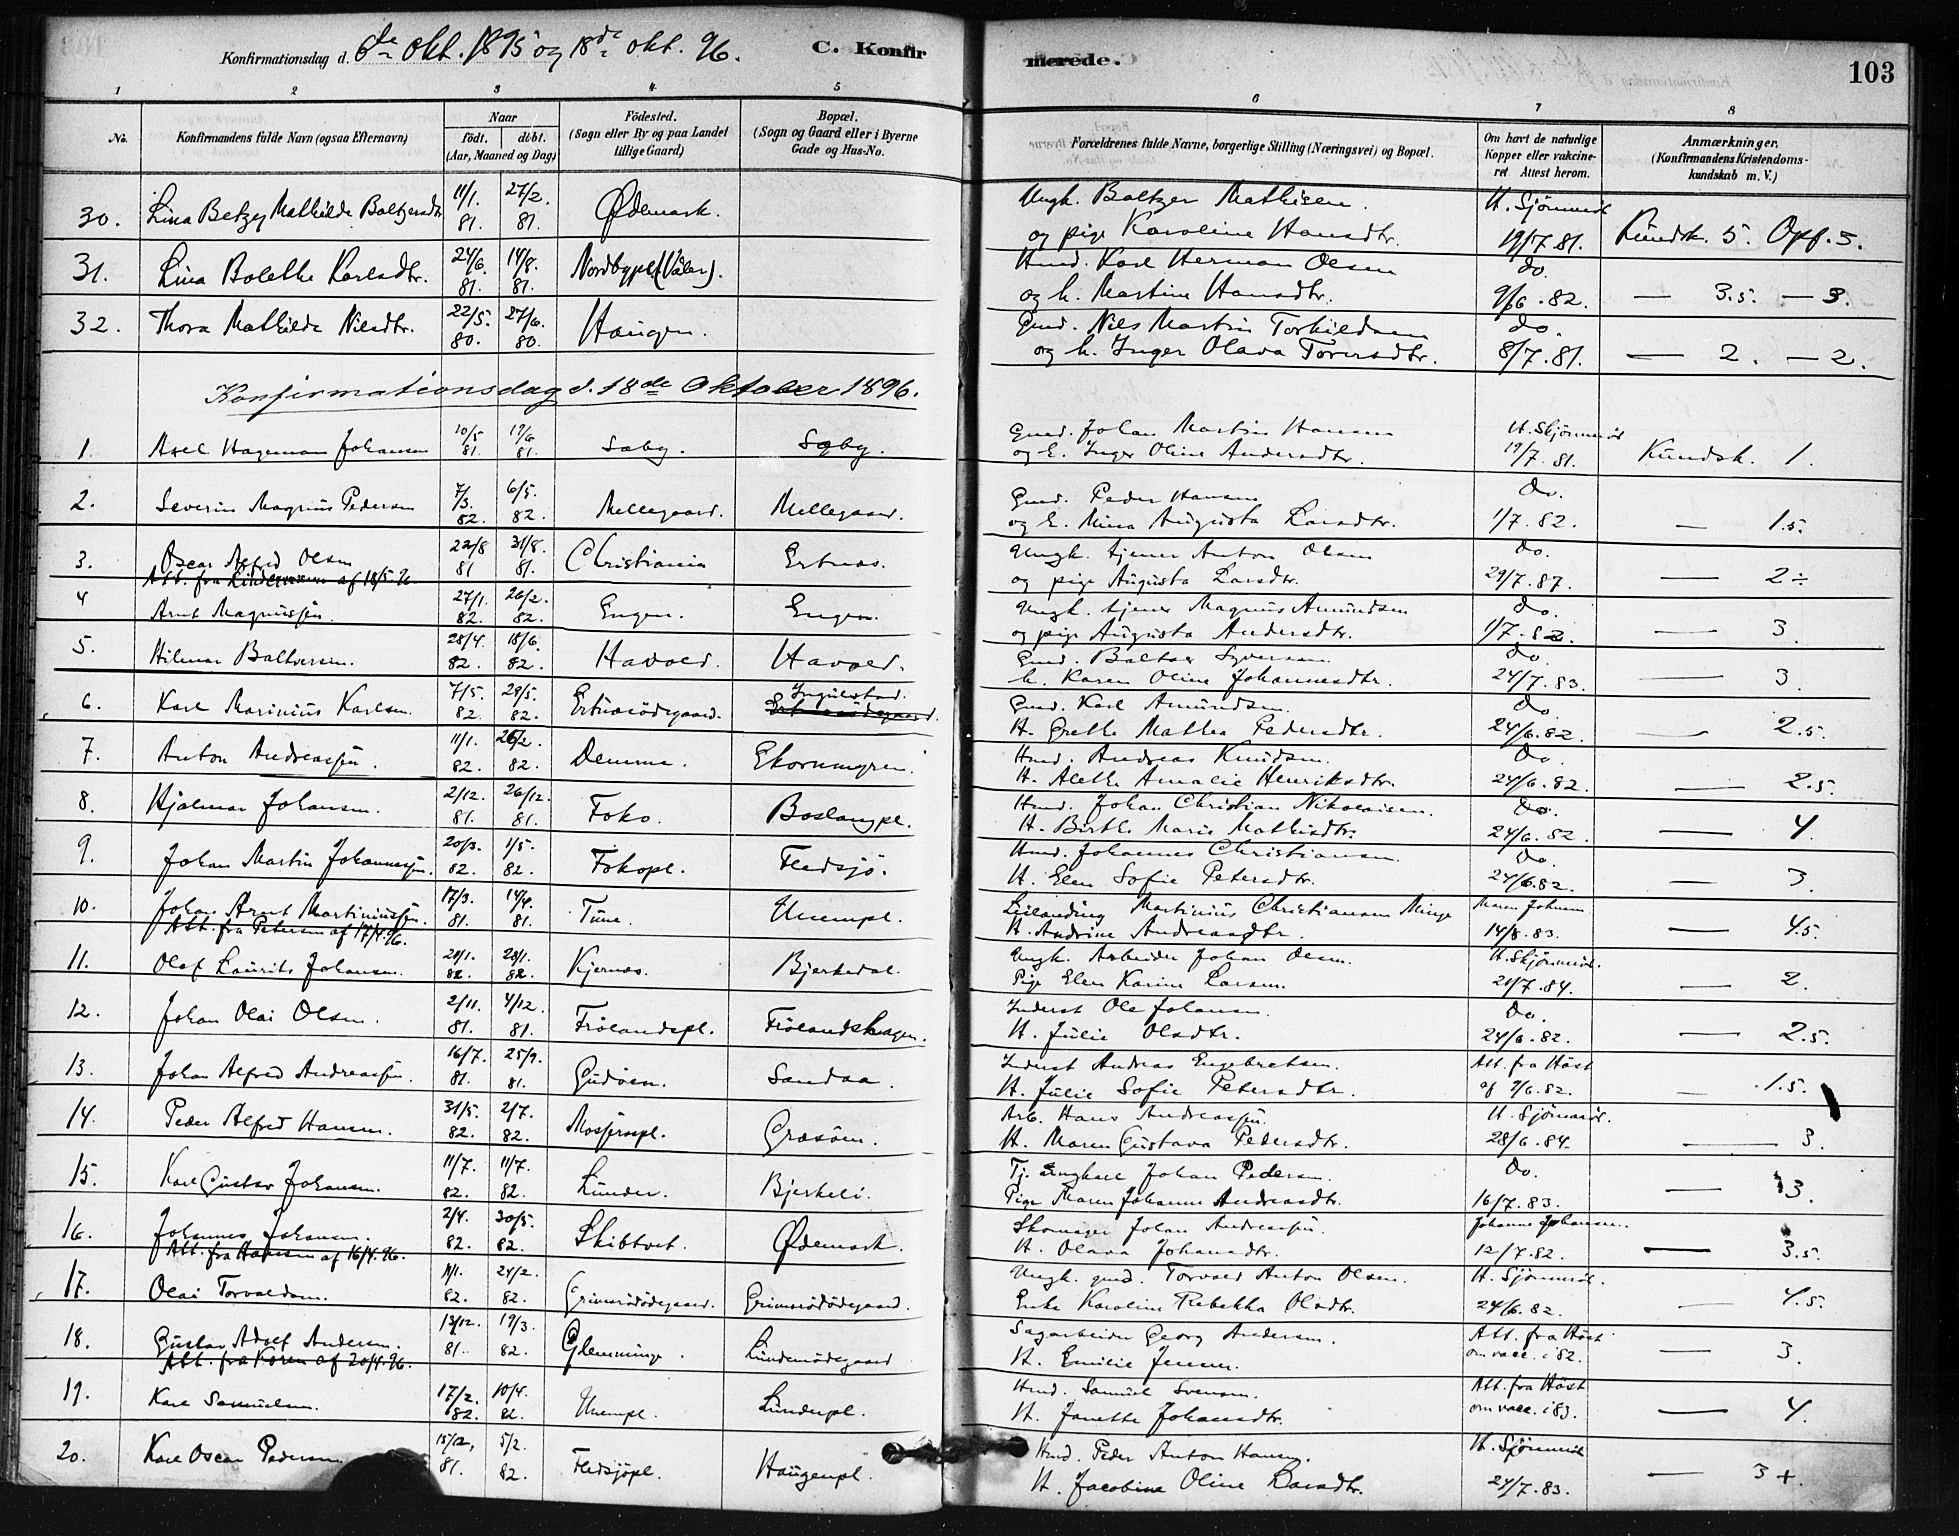 Konfirmationsdag d. 6de Okt. 1895 og 18de Okt. 96. C. Konfirmerede. 103
1 2 3 4 5 6 7 8
No. Konfirmandens fulde Navn (ogsaa Efternavn) Naar født. døbt. (Aar, Maaned og Dag) Fødested. (Sogn eller By og paa Landet tillige Gaard) Bopæl. (Sogn og Gaard eller i Byerne Gade og Hus-No. Forældrenes fulde Navne, borgerlige Stilling (Næringsvei) og Bopæl. Om havt de naturlige Kopper eller vakcineret. Attest herom. Anmærkninger. (Konfirmandens Kristendomskundskab m. V.)
30. Lina Betzy Mathilde Baltzersdtr. 11/1. 81. 27/2. 81. Ødemark. Ungk. Baltzer Mathisen. og pige Karoline Hansdtr. H. Sjönneröd 19/7. 81. Kundsk. 5. Opf. 5.
31. Lina Bolette Karlsdtr. 24/6. 81. 14/8. 81. Nordbypl. (Våler). Hmd. Karl Herman Olsen og h. Martine Hansdtr. do. 9/6. 82. — 3.5. — 3.
32. Thora Mathilde Nilsdtr. 22/5. 80. 27/6. 80. Haugen. Gmd. Nils Martin Torkildsen og h. Inger Olava Toversdtr. do. 8/7. 81. — 2. — 2.
Konfirmationsdag d. 18de Oktober 1896.
1. Axel Hageman Johansen 10/5 81. 19/6 81. Sæby. Sæby. Gmd. Johan Martin Hansen og H. Inger Oline Andersdtr. H. Skjönneröd 19/7. 81. Kundsk. 1.
2. Severin Magnus Pedersen 7/3. 82. 6/5. 82. Mellegaard. Mellegaard. Gmd. Peder Hansen og H. Mina Augusta Larsdtr. do. 1/7. 82. — 1.5.
3. Oscar Alfred Olsen 22/8 81 31/8. 81. Christiania Ertnæs. Ungk. tjener Anton Olsen og pige Augusta Larsdtr. do. 29/7. 87. — 2÷
Att. fra af 18/5. 96
4 Arnt Magnussen. 27/1. 82. 26/2. 82. Engen. Engen. Ungk. tjener Magnus Amundsen og pige Augusta Andersdtr. do. 1/7. 82. — 3.
5. Hilmar Baltzersen. 28/4. 82. 18/6. 82. Havold. Havold. Gmd. Baltzer Syversen. h. Karen Oline Johannesdtr. do. 24/7. 83. — 3.
6. Karl Marinius Karlsen. 7/5. 82. 29/5. 82. Ertnæsödegaard. Ingulstad. Ertnæsödegaard. Gmd. Karl Amundsen. H. Grethe Mathea Pedersdtr. do 24/6. 82. — 2.5.
7. Anton Andreassen. 11/1. 82. 26/2. 82. Demma. Ekornmyren. Hmd. Andreas Knudsen. H. Alethe Amalie Henriksdtr. do. 24/6. 82. — 2.5.
8. Hjalmar Johansen. 2/12. 81. 26/12. 81. Foko. Boslangpl. Hmd. Johan Christian Nikolaisen. H. Birthe Marie Mathisdtr. do. 24/6. 82. — 4.
9. Johan Martin Johannessen. 20/3. 82. 1/5. 82. Fokopl. Fledsjö. Hmd. Johannes Christiansen. H. Elen Sofie Petersdtr. do. 24/6. 82. — 3.
10. Johan Arnt Martiniussen. 17/3. 81. 14/4. 81. Tune. Unempl. Leilænding Martinius Christiansen Minge H. Andrine Andreasdtr. Maren Johnsen 14/8. 83. — 4.5.
Att. fra Petersen af 17/4. 96.
11. Olaf Laurits Johansen. 20/1. 82. 28/1. 82. Kjernæs. Bjerkedal. Ungk. Arbeider Johan Olsen. Pige Elen Karine Larsen. H. Skjönnerød. 20/7. 84. — 2.
12. Johan Olai Olsen. 2/11. 81. 4/12. 81. Frölandspl. Frölandshagen. Inderst Ole Johansen. H. Julie Olsdtr. do. 24/6. 82. — 2.5.
13. Johan Alfred Andreassen. 16/7. 81. 25/9. 81. Gudöen. Sandaa. Inderst Andreas Engebretsen. H. Julie Sofie Petersdtr. Att. fra Höst af 9/6. 82. — 1.5.
14. Peder Alfred Hansen. 31/5. 82. 2/7. 82. Mosjerospl. Græsöen. Arb. Hans Andreassen. H. Maren Gustava Pedersdtr. H. Sjönneröd. 28/6. 84. — 3.
15. Karl Gustav Johansen. 11/7. 82. 11/7. 82. Lunder. Bjerkeli. Tj. Ungkarl Johan Pedersen. Pige Maren Johanne Andreasdtr. Do. 16/7. 83. — 3.
16. Johannes Johansen. 2/4. 82. 30/5. 82. Skibtvet. Ødemark. Skomager Johan Andreassen. H. Olava Johansdtr. Johanne Johansen. 12/7. 82. — 3.5.
Att. fra Hansen af 16/4. 96.
17. Olai Torvaldsen. 11/1. 82. 24/2. 82. Grimsrödödegaard. Grimsrödödegaard. Ungk. gmd. Torvald Anton Olsen. Enke Karoline Rebekka Olsdtr. H. Sjönneröd. 24/6. 82. — 4.5.
18. Gustav Adolf Andersen. 13/12. 81. 19/3. 82. Glemminge. Lunderödegaard Sagarbeider Georg Andersen. H. Emilie Jensen. Att. fra Höst om vacc. i 82. — 3.
Att. fra Koren af 20/4. 96.
19. Karl Samuelsen. 17/2. 82. 10/4. 82. Unempl. Lunderpl. Hmd. Samuel Svensen. H. Janette Johansdtr. Att. fra Höst om vacc. i 83. — 4.
20. Karl Oscar Pedersen 15/12. 81. 5/2. 82. Fledsjöpl. Haugenpl. Hmd. Peder Anton Hansen. H. Jacobine Oline Larsdtr. H. Sjönneröd 24/7. 83. — 3+